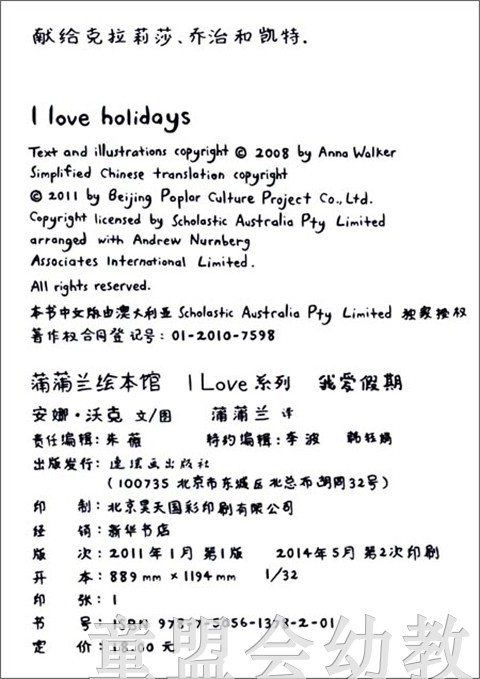 献给克拉莉莎、乔治和凯特.
I love holidays
Text and illustrations copyright © 2008 by Anna Walker
Simplified Chinese translation copyright
© 2011 by Beijing Poplor Culture Project Co., Ltd.
Copyright licensed by Scholastic Australia Pty Limited
arranged with Andrew Nurnberg
Associates International Limited.
All rights reserved.
本书中文版由澳大利亚 Scholastic Australia Pty Limited 独家授权
著作权合同登记号: 01-2010-7598
蒲蒲兰绘本馆 I Love 系列 我爱假期
安娜·沃克 文/图 蒲蒲兰 译
责任编辑: 朱薇 特约编辑: 李波 韩钰娟
出版发行: 连环画出版社
(100735 北京市东城区北总布胡同32号)
印 制: 北京昊天国彩印刷有限公司
经 销: 新华书店
版 次: 2011年1月 第1版 2014年5月 第2次印刷
开 本: 889mm × 1194mm 1/32
印 张: 1
书 号: ISBN 978-7-5056-1378-2-01
定 价: 18.00元
童盟会幼教